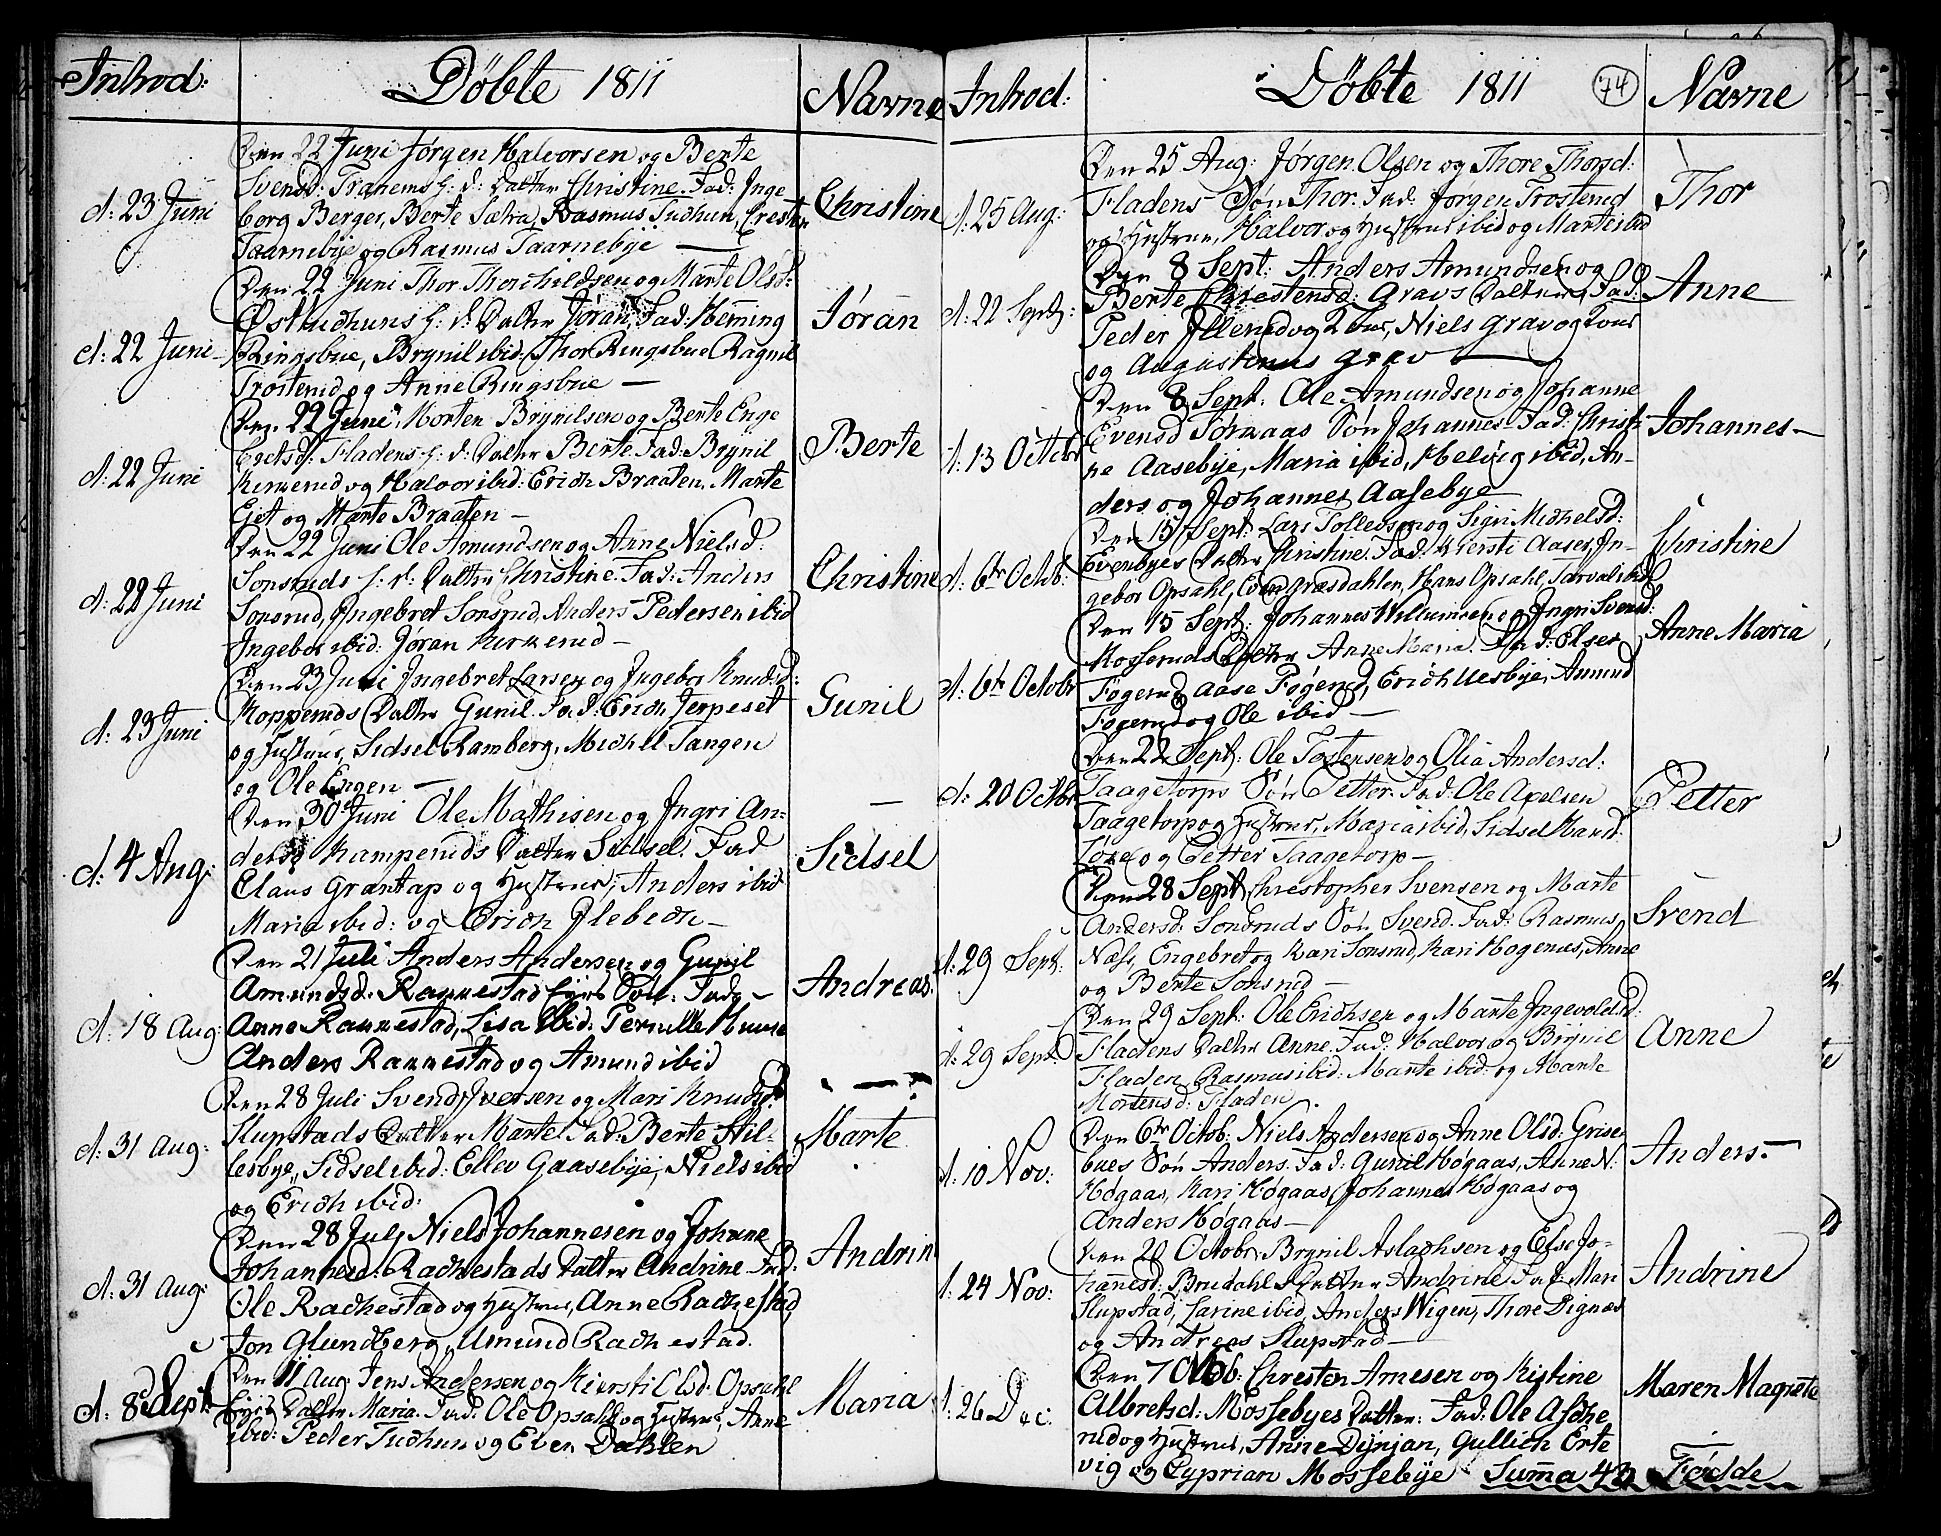 Introd:
Döbte 1811
Navne
Den 22 Juni Jörgen Halvorsen og Berte
Svensd: Tranems h: d: Datter Christine. Fad: Inge
d: 23 Juni
borg Berger, Berte Sætra, Rasmus Sudhun, Crest
Christine
Taarnebÿe og Rasmus Taarnebÿe —
Den 22 Juni Thor Thorchildsen og Marte Olsd:
Östsudhuns h: d: Datter Jöran. Fad: Heming
Jöran
d: 22 Juni
Ringsbue, Brynil ibid: Thor Ringsbue Ragnil
Trosterud og Anne Ringsbue —
Den 22 Juni Morten Brynilsen og Berte Enge
bretsd: Fladens h: d: Datter Berte. Fad: Brynil
Berte
d: 22 Juni
Kirkerud og Halvor ibid: Erich Braaten. Marte
Ejet og Marte Braaten —
Den 22 Juni Ole Amundsen og Anne Nielsd:
Sonsruds h: d: Datter Christine. Fad: Anders
Christine
d: 22 Juni
Sonsrud, Ingebret Sonsrud, Anders Pedersen ibid
Ingebor ibid: Jöran Kirkerud —
Den 23 Juni Ingebret Larsen og Ingebor Knudsd:
Kopperuds Datter Gunil. Fad: Erich Jerpeset
Gunil
d: 23 Juni
og Hustrue, Sidsel Ramberg, Michel Tangen
og Ole Engen —
Den 30 Juni Ole Mathisen og Ingri An-
dersd Kamperuds Datter Sidsel. Fad
Sidsel
d: 4 Aug:
Claus Grantap og Hustrue, Anders ibid
Maria ibid: og Erich Ilebech —
Den 21 Juli Anders Andersen og Gunil
Amundsd: Rannestad Eies Sön: Fad:
Andreas.
d: 18 Aug:
Anne Rannestad, Lisa ibid: Pernille Huuse
Anders Rannestad og Amund ibid
Den 28 Juli Svend Iversen og Mari Knudsd:
Slupstads Datter Marte. Fad: Berte Stil-
Marte
d: 31 Aug:
lesbye, Sidsel ibid: Ellev Gaasebÿe, Niels ibid
og Erich ibid:
Den 28 Juli Niels Johannesen og Johanne
Johannesd: Rachestads Datter Andrine Fad:
Andrin
d: 31 Aug:
Ole Rachestad og Hustrue, Anne Rachestad
Jon Glundberg, Amund Rachestad.
Den 11 Aug: Jens Andersen og Kiersti Olsd: Opsahl
d: 8de Sept:
Eies Datter Maria. Fad: Ole Opsahl og Hustrue, Anne
Maria
ibid: Peder Sudhun og Even Dahlen
Introd:
Döbte 1811
74
Navne
Den 25 Aug: Jörgen Olsen og Thore Thorsd:
Fladens Sön Thor. Fad: Jörgen Trosterud
Thor
d: 25 Aug:
og Hustrue, Halvor og Hustrue ibid og Marte ibid
Den 8 Sept: Anders Amundsen og
Berte Chrestensd: Gravs Datter Fad:
Anne
d: 22 Sept:
Peder Illerud og Kone, Niels Grav og Kone
og Augustinus Grav —
Den 8 Sept: Ole Amundsen og Johanne
Evensd Törnaas Sön Johannes. Fad: Christi
Johannes —
d: 13 Octobr
ne Aasebÿe, Maria ibid, Helvig ibid, An-
ders og Johannes Aasebye
Den 15 Sept: Lars Tollevsen og Sigri Michelsd:
Evenbyes Datter Christine. Fad: Kiersti Aaser, In-
Christine
d: 6te Octob:
gebor Opsahl, Even Græsdahlen, Hans Opsahl, Torval ibid
Den 15 Sept: Johannes Willumsen og Ingri Svensd:
Mosseruds Datter Anne Maria. Fad: Else
Anne Maria
d: 6te Octobr
Fögerud Aase Fögerud, Erich Uesbye, Amund
Fögerud og Ole ibid —
Den 22 Sept: Ole Tostensen og Olia Andersd:
d: 20 Octbr
Taagetorps Sön Petter. Fad: Ole Axelsen
Petter
Taagetorp og Hustrue, Maria ibid, Sidsel
Löke og Petter Taagetorp —
Den 28 Sept: Christopher Svensen og Marte
Andersd: Sonsruds Sön Svend. Fad: Rasmus
Svend
d: 29 Sept:
Næss, Engebret og Kari Sonsrud, Kari Hogenæs, Anne
og Berte Sonsrud —
Den 29 Sept: Ole Erichsen og Marte Ingevoldsd:
d: 29 Sept:
Fladens Datter Anne. Fad: Halvor og Brynil
Anne
Fladen, Rasmus ibid: Marte ibid: og Marte
Mortensd: Fladen.
Den 6te Octob: Niels Andersen og Anne Olsd: Grise-
bues Sön Anders. Fad: Gunil Högaas, Anne N:
Anders —
d: 10 Nov:
Högaas, Kari Högaas, Johannes Högaas og
Anders Högaas —
Den 20 Octobr: Brynil Aslachsen og Else Jo-
hannesd: Brudahls Datter Andrine Fad: Mari
Andrine
d: 24 Nov:
Slupstad, Karine ibid, Anders Wigen, Thore Dignæs
og Andreas Slupstad —
Den 7 Octob: Chresten Arnesen og Kistine
d: 26 Dec:
Albretsd: Mossebyes Datter: Fad: Ole Asche-
Maren Magrete
rud og Hustrue, Anne Dynjan, Gullich Erte
vig og Cyprian Mossebÿe Summa 43 Födde